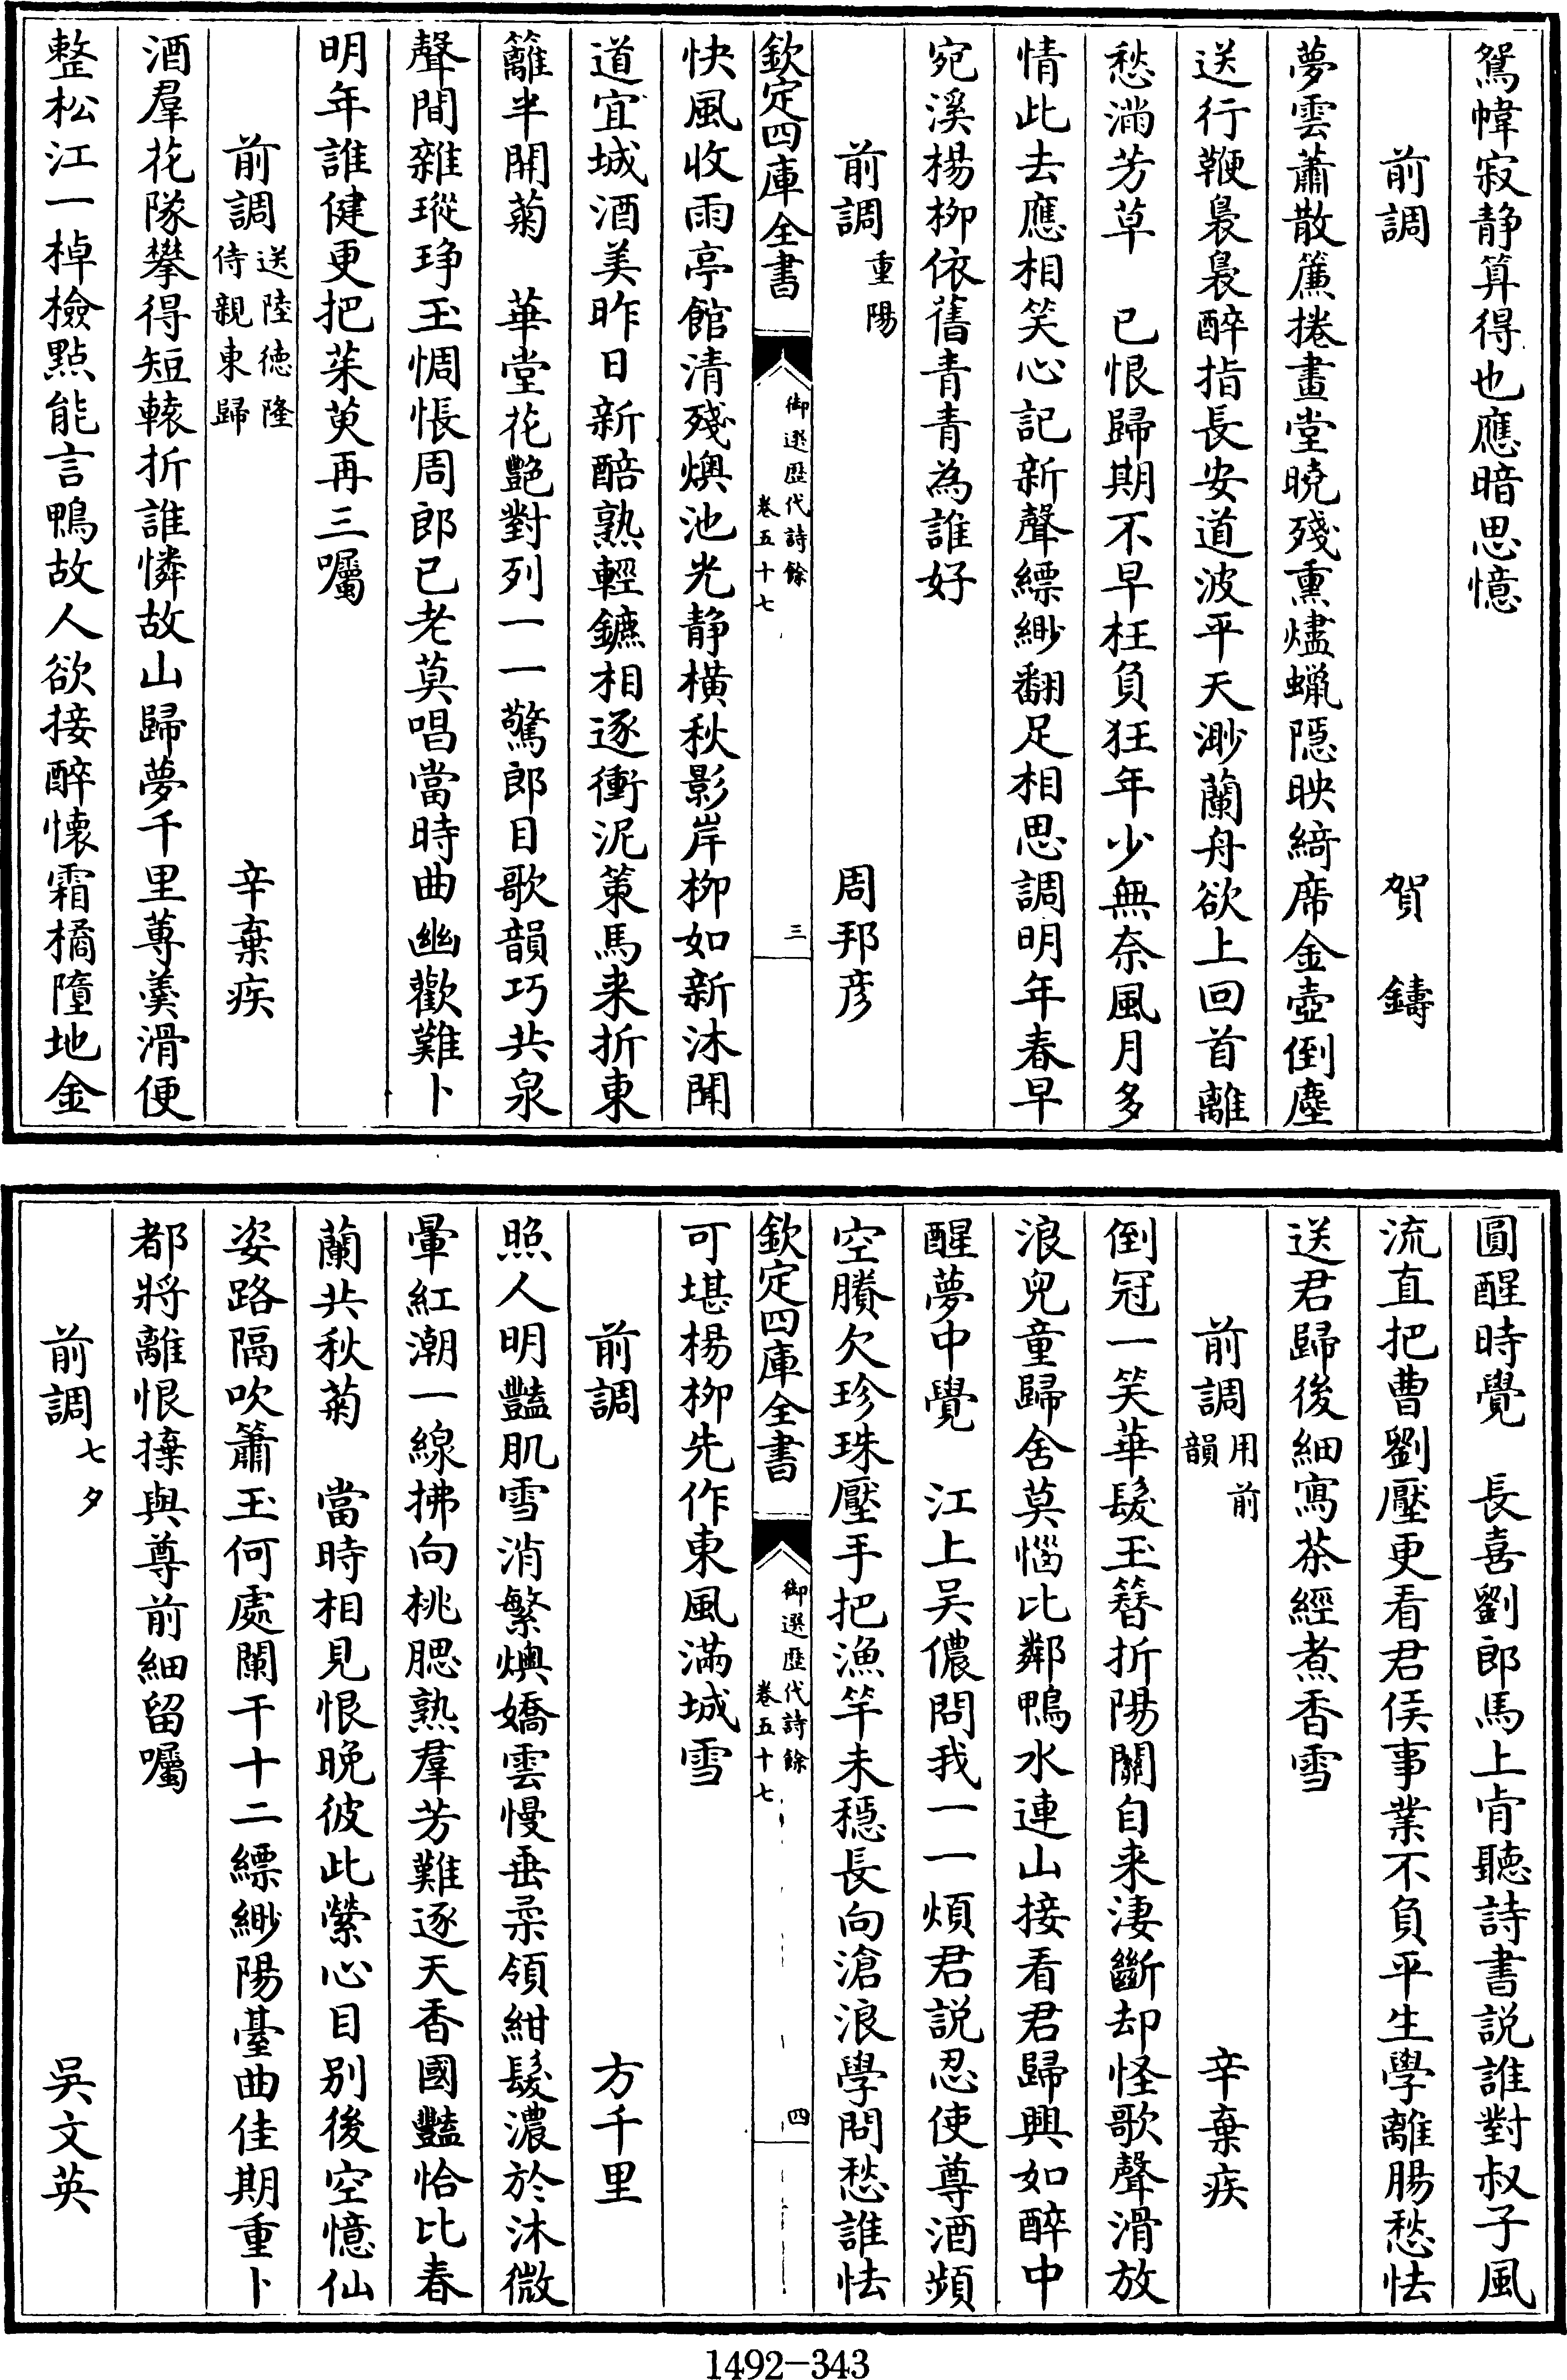 鴛幃寂静算得也應暗思憶
前調 賀鑄
夢雲蕭散簾捲畫堂曉殘熏燼蠟隱映綺席金壺倒塵
送行鞭裊裊醉指長安道波平天渺蘭舟欲上回首離
愁滿芳草 已恨歸期不早枉負狂年少無奈風月多
情此去應相笑心記新聲縹緲翻足相思調明年春早
宛溪楊柳依舊青青為誰好
前調重陽 周邦彦
欽定四庫全書 御選歷代詩餘 卷五十七 三
快風收雨亭館清殘燠池光静横秋影岸柳如新沐聞
道宜城酒美昨日新醅熟輕鑣相逐衝泥策馬来折東
籬半開菊 華堂花艷對列一一驚郎目歌韻巧共泉
聲間雜琮琤玉惆悵周郎已老莫唱當時曲幽歡難卜
明年誰健更把茱萸再三囑
前調送陸德隆侍親東歸 辛棄疾
酒羣花隊攀得短轅折誰憐故山歸夢千里蓴羹滑便
整松江一棹檢點能言鴨故人欲接醉懷霜橘墮地金
圓醒時覺 長喜劉郎馬上肯聽詩書説誰對叔子風
流直把曹劉壓更看君侯事業不負平生學離腸愁怯
送君歸後細寫茶經煮香雪
前調用前韻 辛棄疾
倒冠一笑華髮玉簪折陽關自来淒斷却怪歌聲滑放
浪兒童歸舍莫惱比鄰鴨水連山接看君歸興如醉中
醒夢中覺 江上吴儂問我一一煩君説忍使尊酒頻
空賸欠珍珠壓手把漁竿未穩長向滄浪學問愁誰怯
可堪楊柳先作東風滿城雪
欽定四庫全書 御選歷代詩餘 卷五十七 四
前調 方千里
照人明豔肌雪消繁燠嬌雲慢垂柔領紺髮濃於沐微
暈紅潮一線拂向桃腮熟羣芳難逐天香國豔恰比春
蘭共秋菊 當時相見恨晚彼此縈心目别後空憶仙
姿路隔吹簫玉何處闌干十二縹緲陽臺曲佳期重卜
都將離恨攃與尊前細留囑
前調七夕 吳文英
1492-343